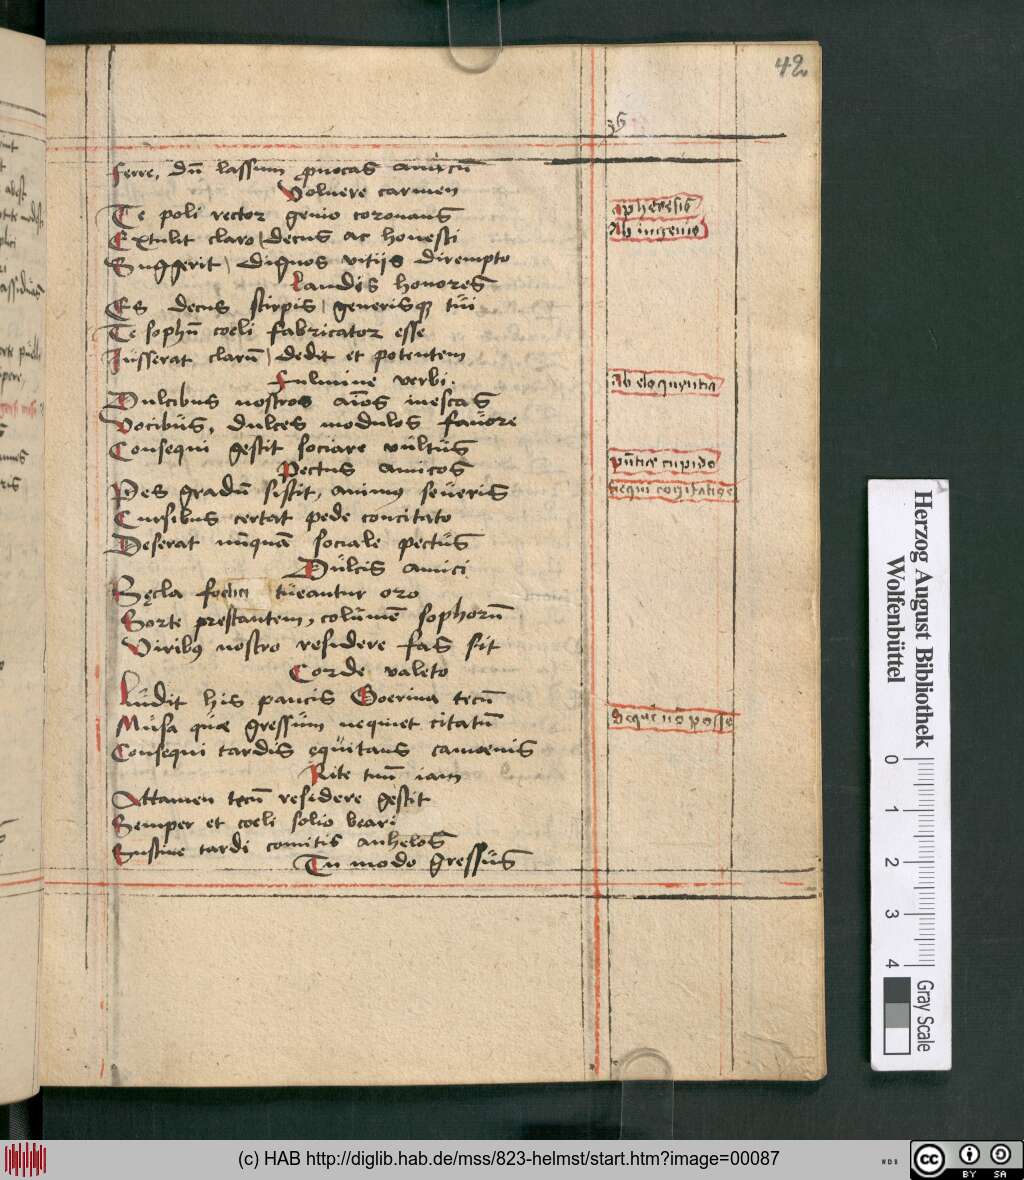 42
ferre, dū lassum ꝓuocas amicū
Voluere carmen
Te poli rector genio coronans
Extulit claro decus ac honesti
Suggerit dignos vitijs dirempto
Laudis honores
Es decus stirpis generisqꝫ tui
Te sophū coeli fabricator esse
Iusserat clarū dedit et potentem
Fulmine verbi.
Dulcibus nostros aīos inescas
Vocibus, dulces modulos fauore
Consequi gestit sociare vultus
Pectus amicos
Pes gradū sistit, animꝰ seueris
Cursibus certat pede concitato
Deserat nūquā sociale pectus
Dulcis amici
Sęcla foelici tueantur oro
Sorte prestantem, columē sophorū
Viribꝰ nostro residere fas sit
Corde valeto
Ludit his paucis Goerina tecū
Musa quae gressum nequiet citatū
Consequi tardis equitans camoenis
Rite tuū iam
Attamen tecū residere gestit
Semper et coeli solio beari
Sustine tardi comitis anhelos
Tu modo gressus
aphęresis
Ab ingenio
Ab eloquentia
Sequi nō posse
Herzog August Bibliothek
Wolfenbüttel
0 1 2 3 4
Gray Scale
(c) HAB http://diglib.hab.de/mss/823-helmst/start.htm?image=00087
cc BY SA